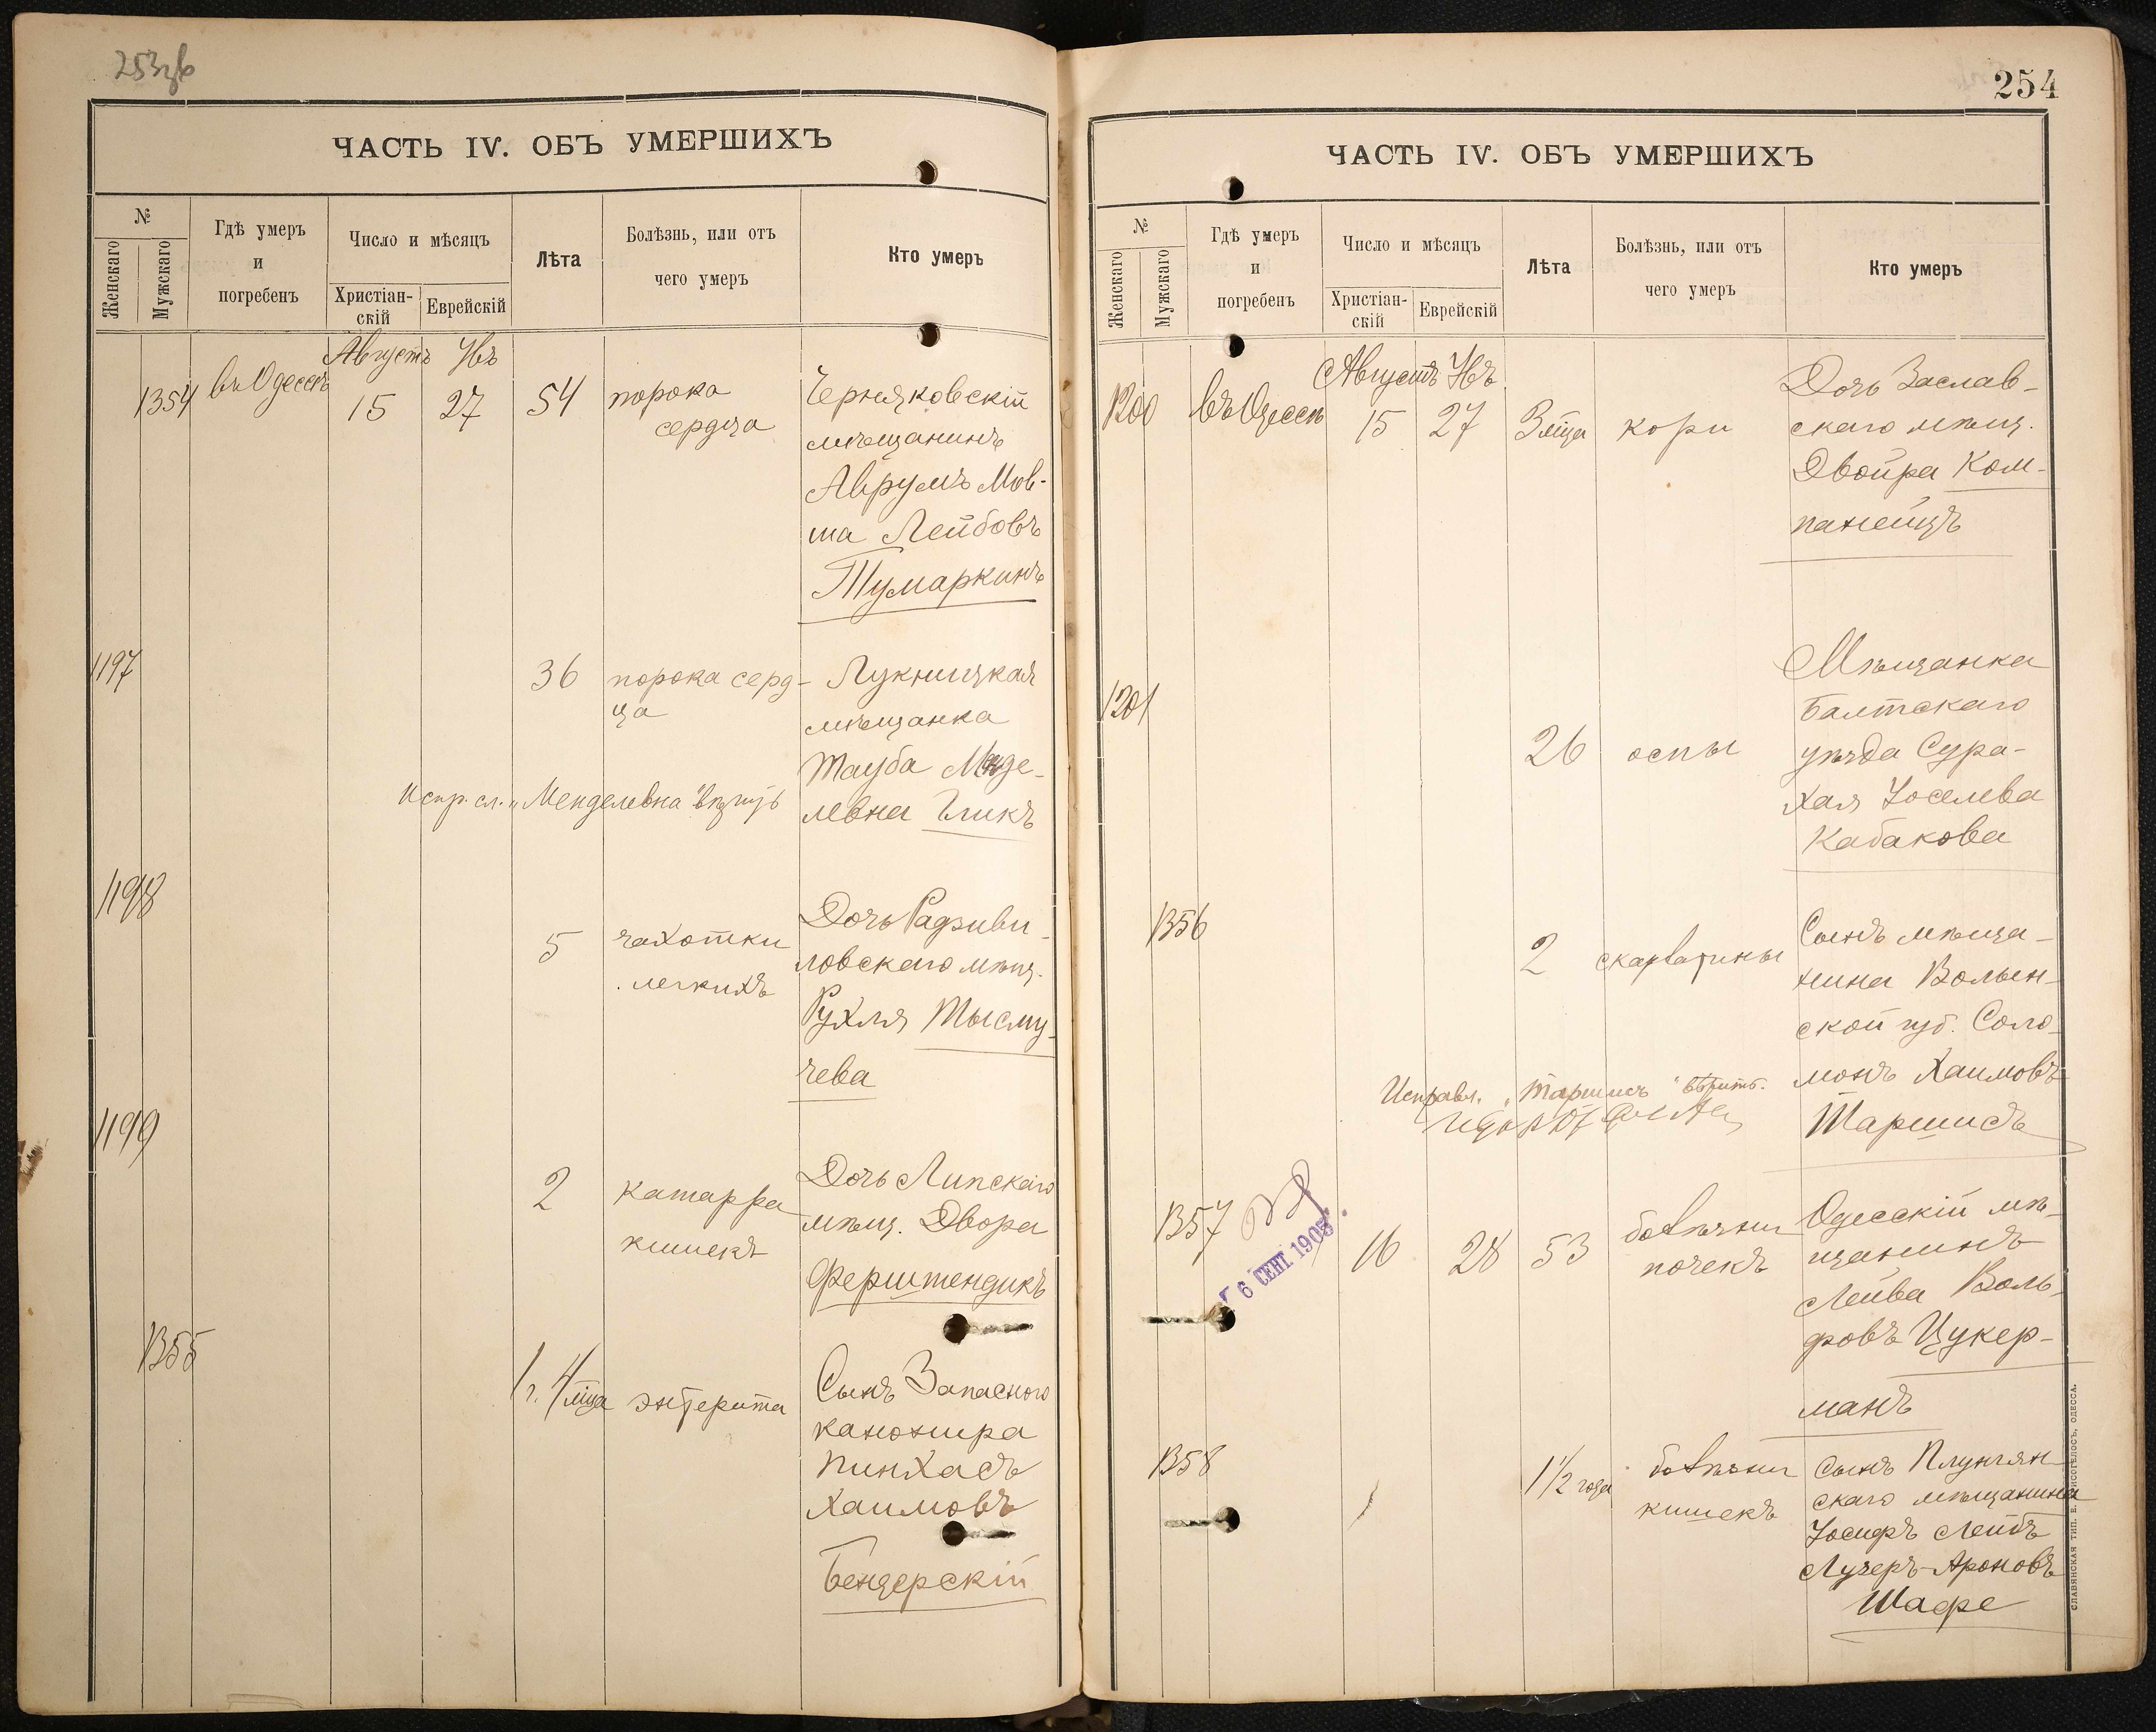 253 об
ЧАСТЬ IV. ОБЪ УМЕРШИХЪ
№
Женскаго
Мужскаго
Гдѣ умеръ
и
погребенъ
Число и мѣсяцъ
Христіан-
скій
Еврейскій
Лѣта
Болѣзнь, или отъ
чего умеръ
Кто умеръ
Августъ Увъ
1354 въ Одессѣ 15 27 54 порока
сердца
Черняховскій
мѣщанинъ
Аврумъ Мов-
ша Лейбовъ
Тумаркинъ
1197 36 порока серд-
ца
Лукницкая
мѣщанка
Тауба Менде-
левна Гликъ
Испр. сл. „Менделевна"
1198 5 чахотки
легкихъ
Дочь Радзиви-
ловскаго мѣщ.
Рухля Тысму-
чева
1199 2 катарра
кишекъ
Дочь Липскаго
мѣщ. Двора
Ферштендикъ
1355 1 г. 4 мца энтерита
Сынъ Запасного
канонира
Пинхасъ
Хаимовъ
Бендерскій
254
ЧАСТЬ IV. ОБЪ УМЕРШИХЪ
№
Женскаго
Мужскаго
Гдѣ умеръ
и
погребенъ
Число и мѣсяцъ
Христіан-
скій
Еврейскій
Лѣта
Болѣзнь, или отъ
чего умеръ
Кто умеръ
Августъ Увъ
1200 въ Одессѣ 15 27 3 мца кори
Дочь Заслав-
скаго мѣщ.
Двойра Ком-
панеецъ
1201 26 оспы
Мѣщанка
Балтскаго
уѣзда Сура-
Хая Іоселева
Кабакова
1356 2 скарлатины
Сынъ мѣща-
нина Волын-
ской губ. Соло-
монъ Хаимовъ
Таршисъ
Исправл. „Таршисъ" вѣрить.
1357 16 28 53 болѣзни
почекъ
Одесскій мѣ-
щанинъ
Лейва Воль-
фовъ Цукер-
манъ
6 СЕНТ 1905
1358 1 1/2 года болѣзни
кишекъ
Сынъ Плунгян-
скаго мѣщанина
Іосифъ Лейбъ
Лузеръ-Ароновъ
Шафе
СЛАВЯНСКАЯ ТИП. Е. ХРИСОГЕЛОСЪ, ОДЕССА.